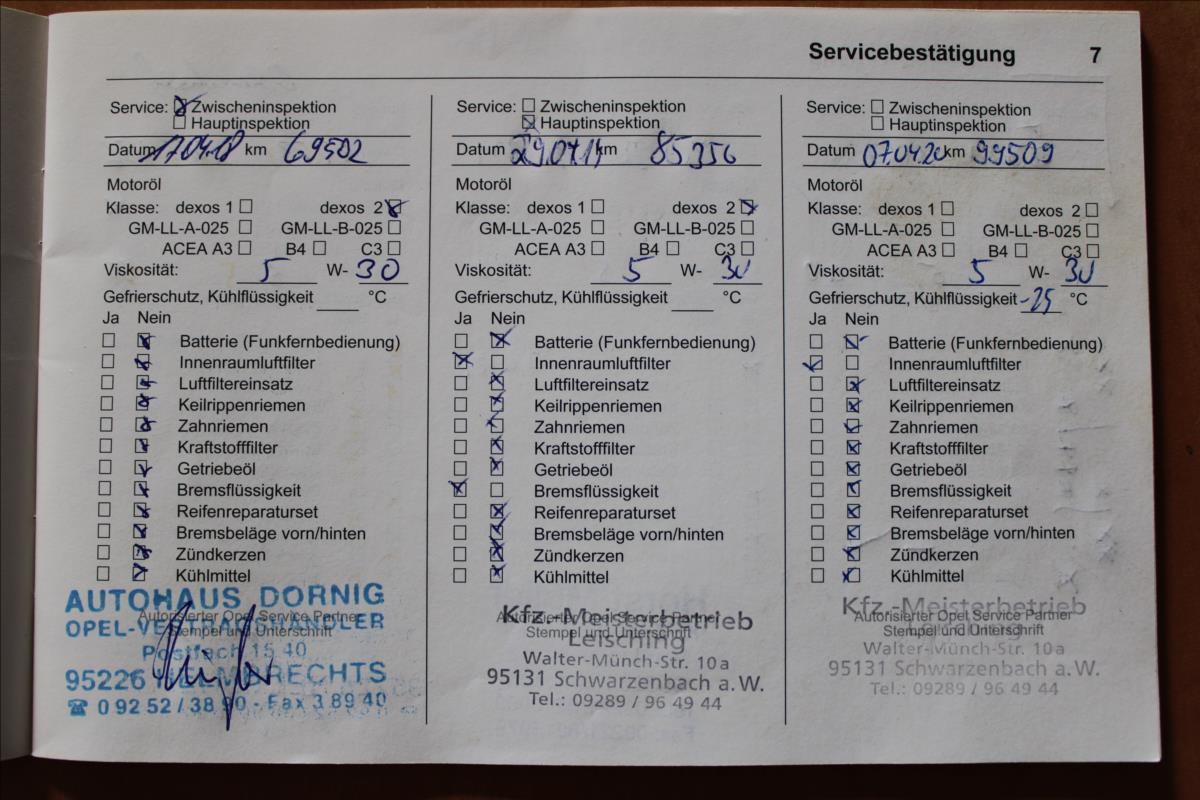 Servicebestätigung 7
Service: Zwischeninspektion
Hauptinspektion
Datum 17.04.18 km 69502
Motoröl
Klasse: dexos 1 dexos 2
GM-LL-A-025 GM-LL-B-025
ACEA A3 B4 C3
Viskosität: 5 W- 30
Gefrierschutz, Kühlflüssigkeit °C
Ja Nein
Batterie (Funkfernbedienung)
Innenraumluftfilter
Luftfiltereinsatz
Keilrippenriemen
Zahnriemen
Kraftstofffilter
Getriebeöl
Bremsflüssigkeit
Reifenreparaturset
Bremsbeläge vorn/hinten
Zündkerzen
Kühlmittel
AUTOHAUS DORNIG
Autorisierter Opel Service Partner
OPEL-VERTRAGSHÄNDLER
Stempel und Unterschrift
Postfach 15 40
95226 HELMBRECHTS
☎ 0 92 52 / 38 90 - Fax 3 89 40
Service: Zwischeninspektion
Hauptinspektion
Datum 29.04.19 km 85356
Motoröl
Klasse: dexos 1 dexos 2
GM-LL-A-025 GM-LL-B-025
ACEA A3 B4 C3
Viskosität: 5 W- 30
Gefrierschutz, Kühlflüssigkeit °C
Ja Nein
Batterie (Funkfernbedienung)
Innenraumluftfilter
Luftfiltereinsatz
Keilrippenriemen
Zahnriemen
Kraftstofffilter
Getriebeöl
Bremsflüssigkeit
Reifenreparaturset
Bremsbeläge vorn/hinten
Zündkerzen
Kühlmittel
Kfz.-Meisterbetrieb
Autorisierter Opel Service Partner
Stempel und Unterschrift
Leisching
Walter-Münch-Str. 10a
95131 Schwarzenbach a.W.
Tel.: 09289 / 96 49 44
Service: Zwischeninspektion
Hauptinspektion
Datum 07.04.20 km 99509
Motoröl
Klasse: dexos 1 dexos 2
GM-LL-A-025 GM-LL-B-025
ACEA A3 B4 C3
Viskosität: 5 W- 30
Gefrierschutz, Kühlflüssigkeit -25 °C
Ja Nein
Batterie (Funkfernbedienung)
Innenraumluftfilter
Luftfiltereinsatz
Keilrippenriemen
Zahnriemen
Kraftstofffilter
Getriebeöl
Bremsflüssigkeit
Reifenreparaturset
Bremsbeläge vorn/hinten
Zündkerzen
Kühlmittel
Kfz.-Meisterbetrieb
Autorisierter Opel Service Partner
Stempel und Unterschrift
Leisching
Walter-Münch-Str. 10a
95131 Schwarzenbach a.W.
Tel.: 09289 / 96 49 44